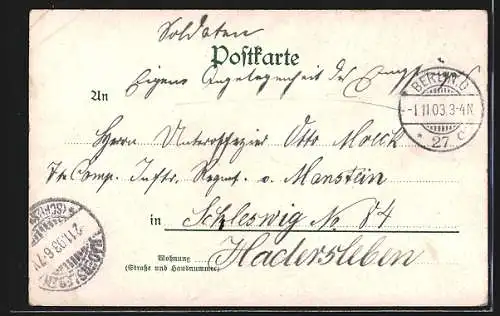 Soldaten
Postkarte
Eigene Angelegenheit des Empfängers
An
BERLIN O
-1.11.03.3-4N.
* 27 c
Herrn Unteroffizier Otto Mock
7te Comp. Inftr. Regmt. v. Manstein
in Schleswig No 84
Hadersleben
Wohnung
(Straße und Hausnummer)
HADERSLEBEN
2.11.03.6-7V
(SCHLESW.)